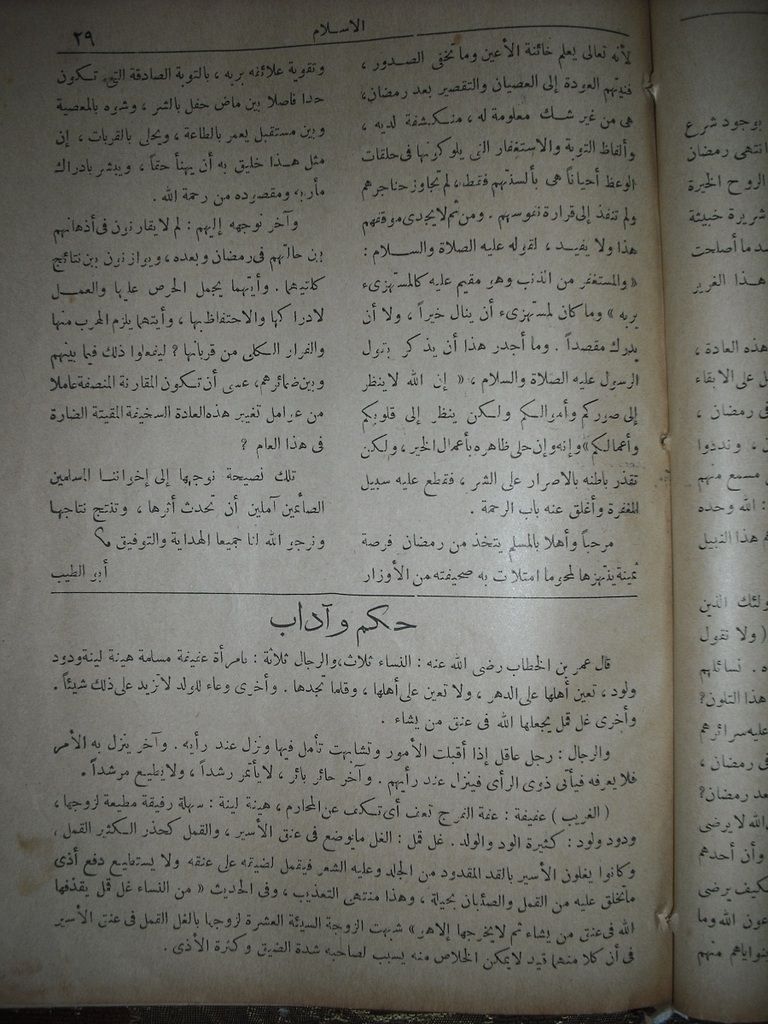 الاسلام
٢٩
لأنه تعالى يعلم خائنة الأعين وما تخفى الصدور ،
فنيتهم العودة إلى العصيان والتقصير بعد رمضان،
هى من غير شك معلومة له ، منكشفة لديه ،
وألفاظ التوبة والاستغفار التى يلوكونها فى حلقات
الوعظ أحياناً هى بألسنتهم فقط، لم تجاوز حناجرهم
ولم تنفذ إلى قرارة نفوسهم . ومن ثم لا يجدى موقفهم
هذا ولا يفيد ، لقوله عليه الصلاة والسلام :
« والمستغفر من الذنب وهو مقيم عليه كالمستهزىء
بربه » وما كان لمستهزىء أن ينال خيراً ، ولا أن
يدرك مقصداً . وما أجدر هذا أن يذكر بقول
الرسول عليه الصلاة والسلام ، « إن الله لا ينظر
إلى صوركم وأموالكم ولكن ينظر إلى قلوبكم
وأعمالكم » وإنه وإن حلى ظاهره بأعمال الخير ، ولكن
تقذر باطنه بالاصرار على الشر ، فقطع عليه سبيل
المغفرة وأغلق عنه باب الرحمة .
مرحباً وأهلا بالمسلم يتخذ من رمضان فرصة
ثمينة ينتهزها لمحو ما امتلأت به صحيفته من الأوزار
وتقوية علائقه بربه ، بالتوبة الصادقة التى تكون
حدا فاصلا بين ماض حفل بالشر ، وشوه بالمعصية
وبين مستقبل يعمر بالطاعة ، ويحلى بالقربات ، إن
مثل هذا خليق به أن يهنأ حقاً ، ويبشر بادراك
مأربه ومقصوده من رحمة الله .
وآخر نوجهه إليهم : لم لا يقارنون فى أذهانهم
بين حالتهم فى رمضان وبعده ، ويوازنون بين نتائج
كلتيهما . وأيتهما يجمل الحرص عليها والعمل
لادراكها والاحتفاظ بها ، وأيتهما يلزم الهرب منها
والفرار الكلى من قربانها ? ليفعلوا ذلك فيما بينهم
وبين ضمائرهم، عسى أن تكون المقارنة المنصفة عاملا
من عوامل تغيير هذه العادة السخيفة المقيتة الضارة
فى هذا العام ?
تلك نصيحة نوجهها إلى إخواننا المسلمين
الصائمين آملين أن تحدث أثرها ، وتنتج نتاجها
ونرجو الله لنا جميعا الهداية والتوفيق
أبو الطيب
حكم وآداب
قال عمر بن الخطاب رضى الله عنه : النساء ثلاث، والرجال ثلاثة : فامرأة عفيفة مسلمة هينة لينة ودود
ولود ، تعين أهلها على الدهر ، ولا تعين على أهلها ، وقلما تجدها . وأخرى وعاء للولد لا تزيد على ذلك شيئاً .
وأخرى غل قمل يجعلها الله فى عنق من يشاء .
والرجال : رجل عاقل إذا أقبلت الأمور وتشابهت تأمل فيها ونزل عند رأيه . وآخر ينزل به الأمر
فلا يعرفه فيأتى ذوى الرأى فينزل عند رأيهم . وآخر حائر بائر ، لا يأتمر رشداً ، ولا يطيع مرشداً .
( الغريب ) عفيفة : عفة الفرج تعف أى تكف عن المحارم ، هينة لينة : سهلة رفيقة مطيعة لزوجها ،
ودود ولود : كثيرة الود والولد . غل قمل : الغل ما يوضع فى عنق الأسير ، والقمل كحذر الكثير القمل ،
وكانوا يغلون الأسير بالقد المقدود من الجلد وعليه الشعر فيقمل لضيقه على عنقه ولا يستطيع دفع أذى
ما تخلق عليه من القمل والصئبان بحيلة ، وهذا منتهى التعذيب ، وفى الحديث « من النساء غل قمل يقذفها
الله فى عنق من يشاء ثم لا يخرجها إلا هو » شبهت الزوجة السيئة العشرة لزوجها بالغل القمل فى عنق الأسير
فى أن كلا منهما قيد لا يمكن الخلاص منه يسبب لصاحبه شدة الضيق وكثرة الأذى .
بوجود شرع
انتهى رمضان
الروح الخيرة
شريرة خبيثة
ما أصلحت
هذا الغرير
هذه العادة ،
على الابقاء
فى رمضان ،
، ونددوا
مسمع منهم
: الله وحده
هذا النبيل
الذين
( ولا تقول
. نسائلهم
هذا التلون?
عليه سرائرهم
فى رمضان ،
بعد رمضان?
الله لا يرضى
وأن أحدهم
فكيف يرضى
الله وما
منهم